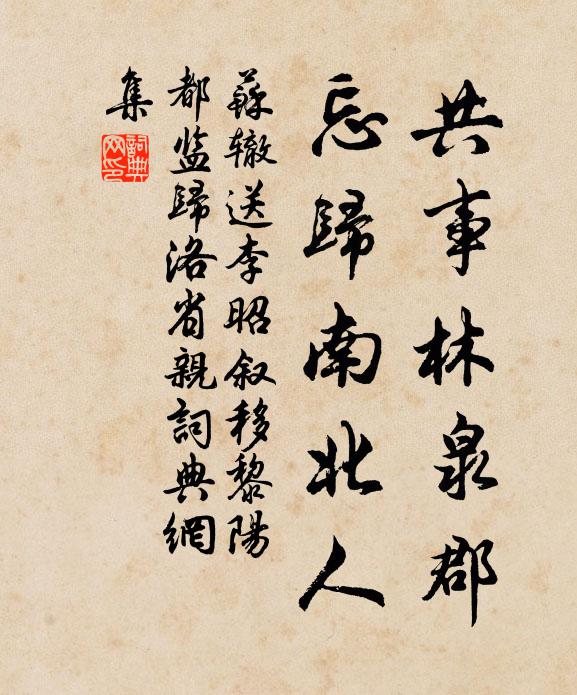 共事林泉郡
忘歸南北人
蘇辙送李昭叙移黎陽
都监歸洛省親詞典網
集
詞典
网印